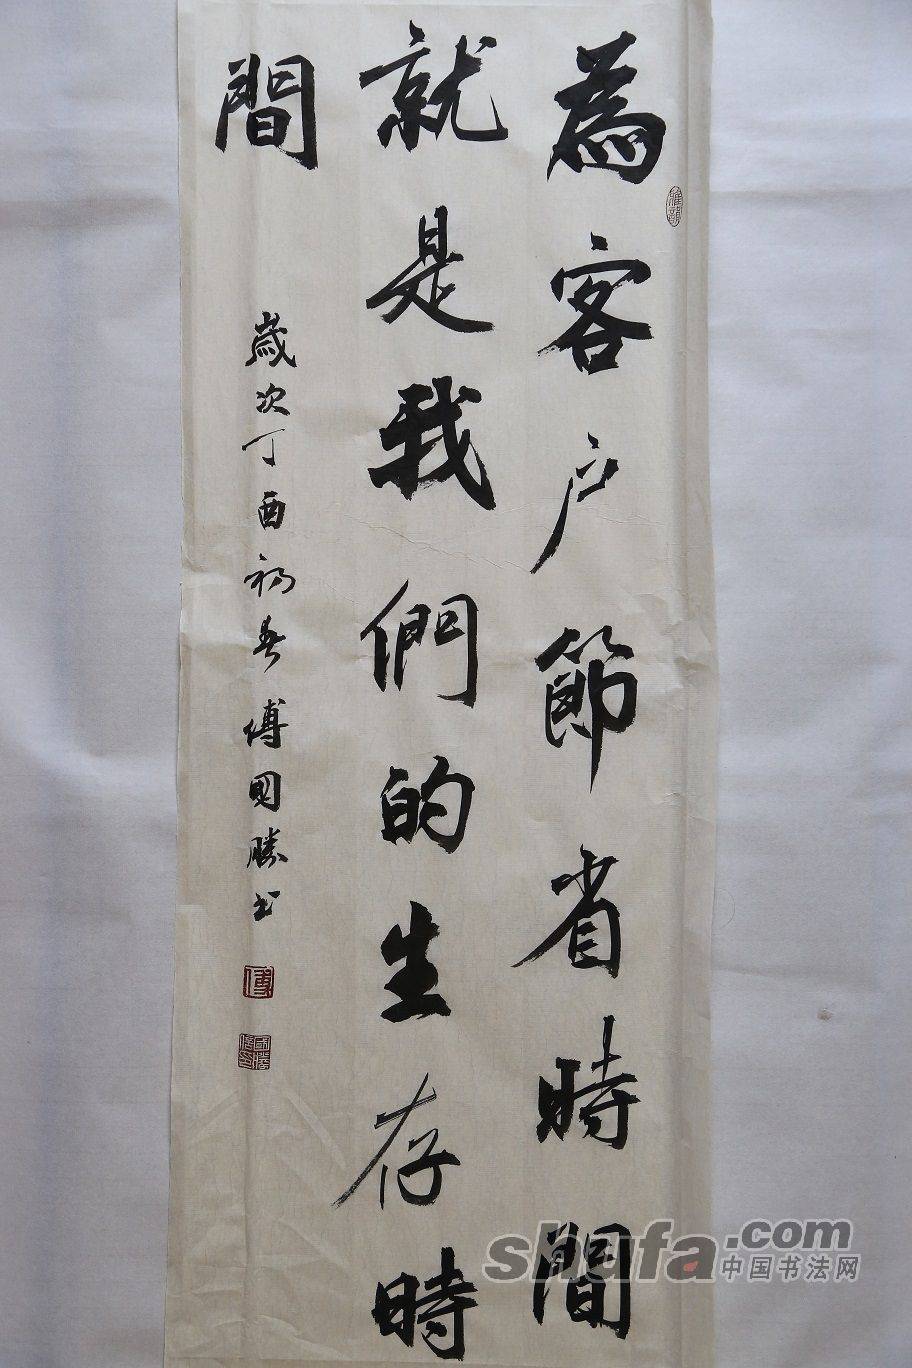 為客户節省時間
就是我們的生存時
間
歲次丁酉初春傅國勝书
傅
shufa.com
中国书法网